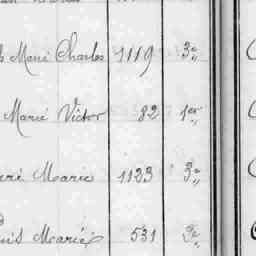 Marie Charles 1119 3e
Marie Victor 82 1er
Marie 1123 3e
Marie 531 3e